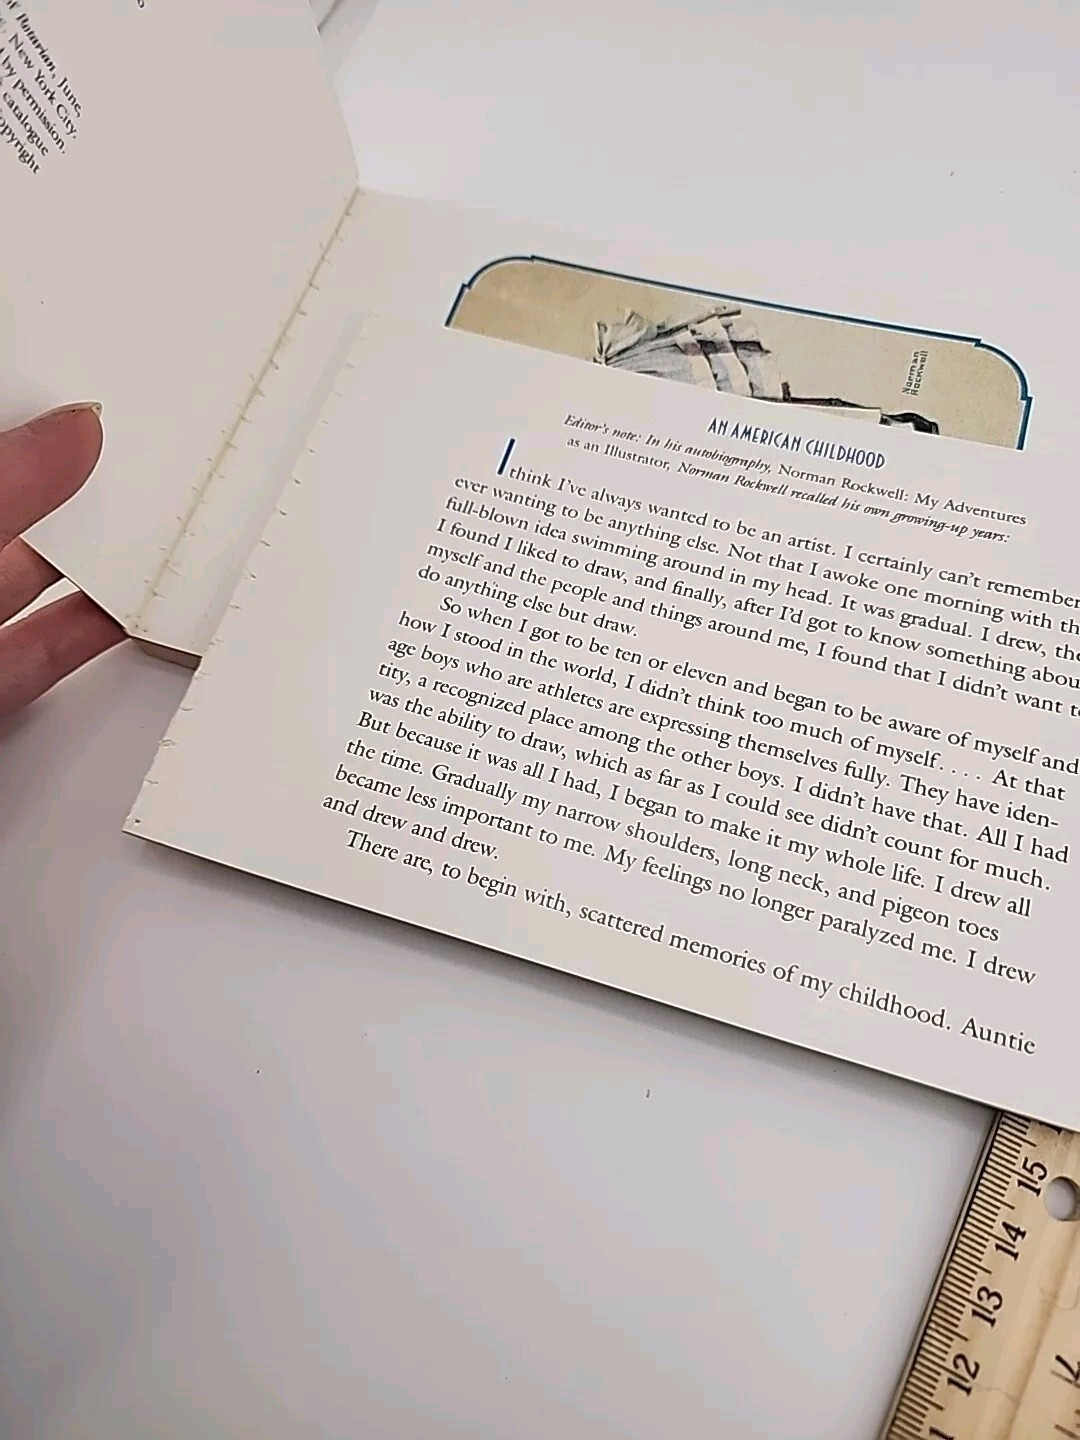 of Rotarian, June,
New York City.
by permission.
catalogue
Norman
Rockwell
AN AMERICAN CHILDHOOD
Editor's note: In his autobiography, Norman Rockwell: My Adventures
as an Illustrator, Norman Rockwell recalled his own growing-up years:
I think I've always wanted to be an artist. I certainly can't remember
ever wanting to be anything else. Not that I awoke one morning with
full-blown idea swimming around in my head. It was gradual. I drew,
I found I liked to draw, and finally, after I'd got to know something
myself and the people and things around me, I found that I didn't want
do anything else but draw.
So when I got to be ten or eleven and began to be aware of myself and
how I stood in the world, I didn't think too much of myself. . . . At that
age boys who are athletes are expressing themselves fully. They have iden-
tity, a recognized place among the other boys. I didn't have that. All I had
was the ability to draw, which as far as I could see didn't count for much.
But because it was all I had, I began to make it my whole life. I drew all
the time. Gradually my narrow shoulders, long neck, and pigeon toes
became less important to me. My feelings no longer paralyzed me. I drew
and drew and drew.
There are, to begin with, scattered memories of my childhood. Auntie
15
14
13
12
7